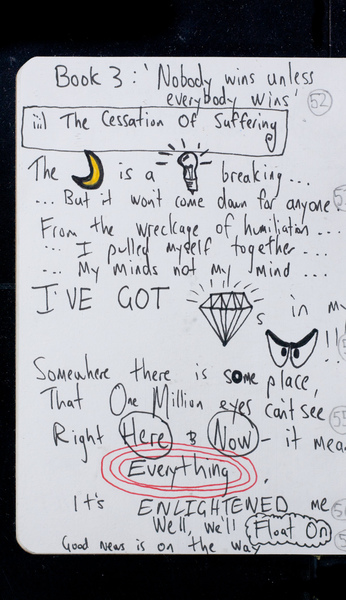 Book 3: 'Nobody wins unless
everybody wins'
52
iii) The Cessation Of Suffering
The is a breaking...
... But it won't come down for anyone
From the wreckage of humiliation ...
... I pulled myself together ...
... My minds not my mind ...
I'VE GOT s in my
!!!
Somewhere there is some place,
That One Million eyes can't see
Right Here & Now - it mea
Everything.
It's ENLIGHTENED me
Well, we'll Float On
Good news is on the way